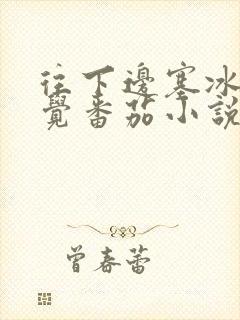 往下邊塞冰
覺番茄小說
曾春蕾